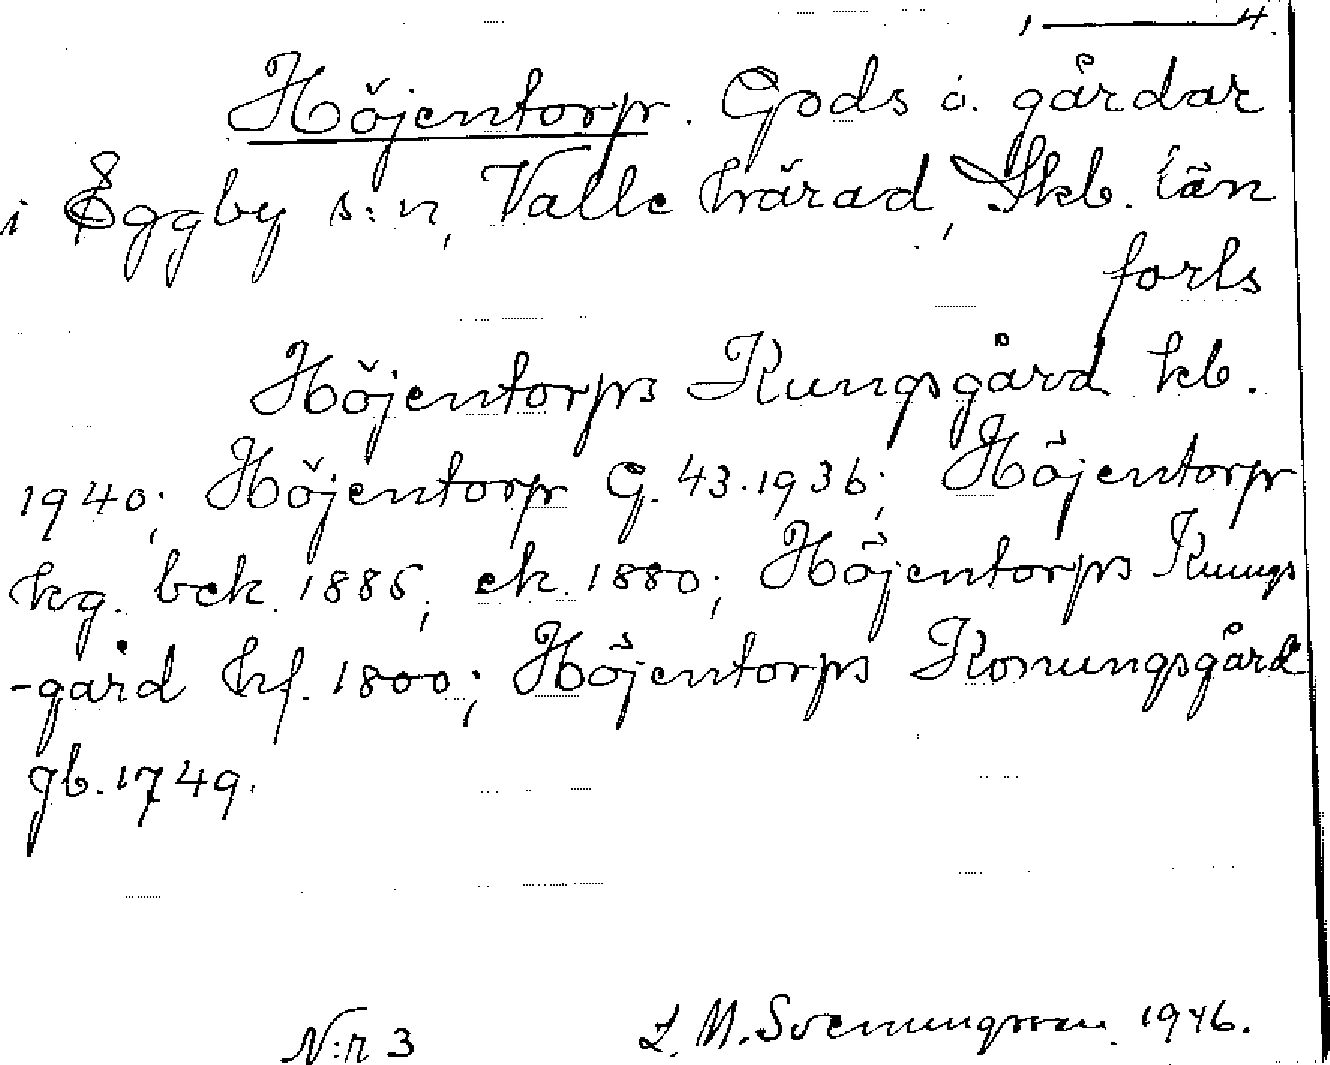 1 — 4.
Höjentorp. Gods o. gårdar
i Eggby s:n, Valle härad, Skb. län
forts
Höjentorps Kungsgård kb.
1940; Höjentorp G. 43. 1936; Höjentorp
hg. bek. 1886, ek. 1880; Höjentorps Kungs
-gård hf. 1800; Höjentorps Konungsgård
gb. 1749.
N:r 3 L. M. Svenungsson 1946.